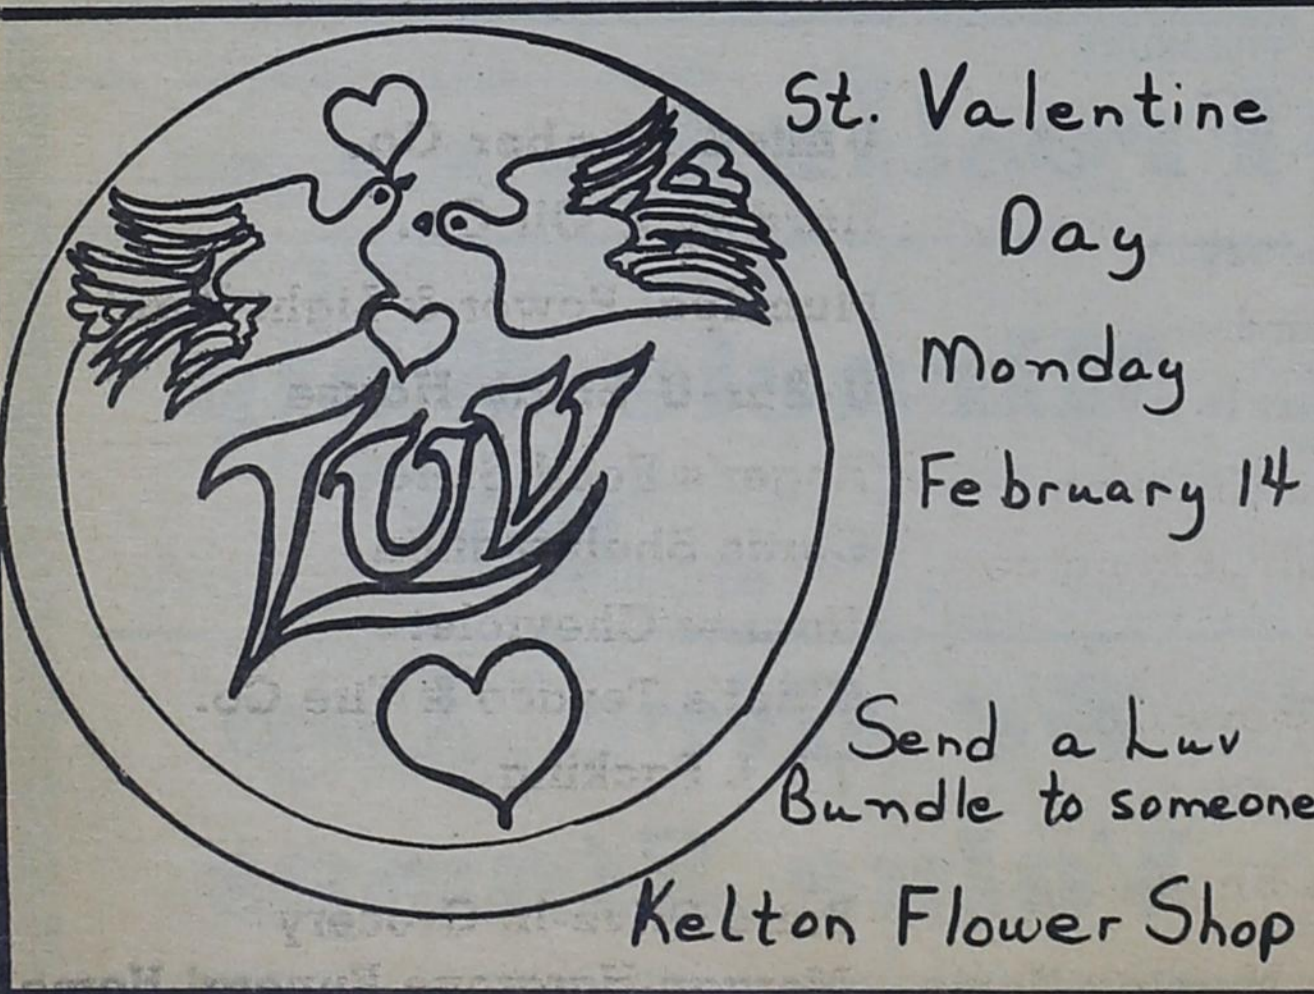 Luv
St. Valentine
Day
Monday
February 14
Send a Luv
Bundle to someone
Kelton Flower Shop